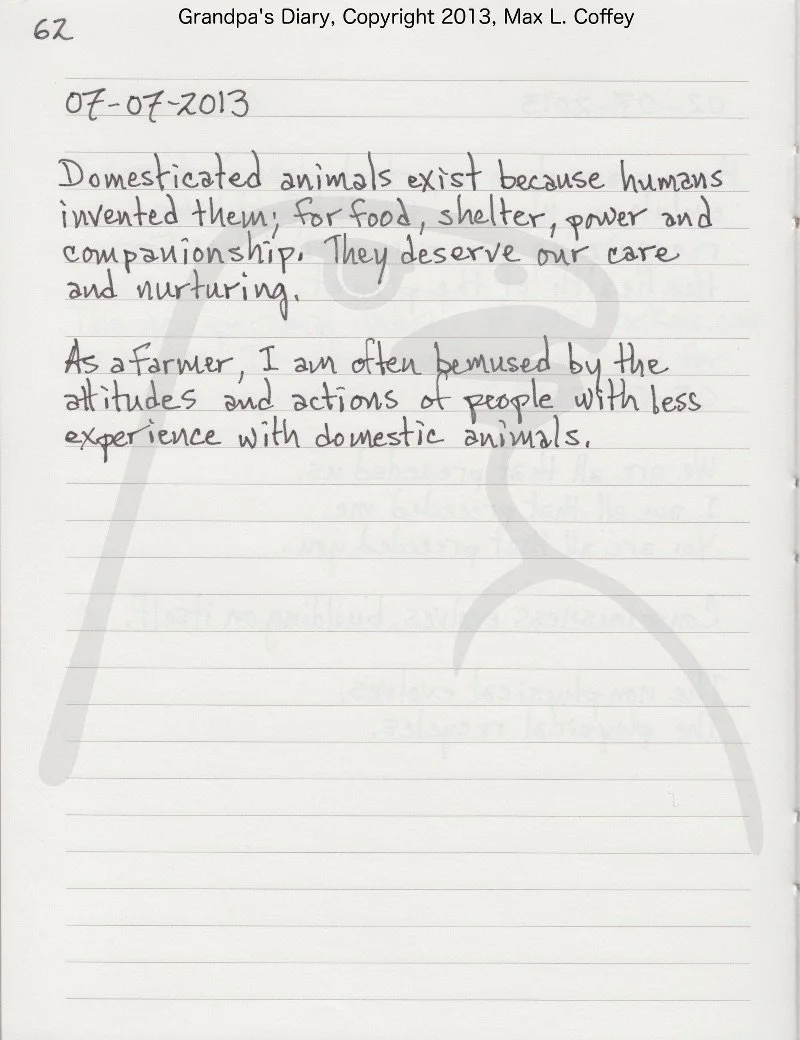 Grandpa's Diary, Copyright 2013, Max L. Coffey
62
07-07-2013
Domesticated animals exist because humans
invented them; for food, shelter, power and
companionship. They deserve our care
and nurturing.
As a farmer, I am often bemused by the
attitudes and actions of people with less
experience with domestic animals.